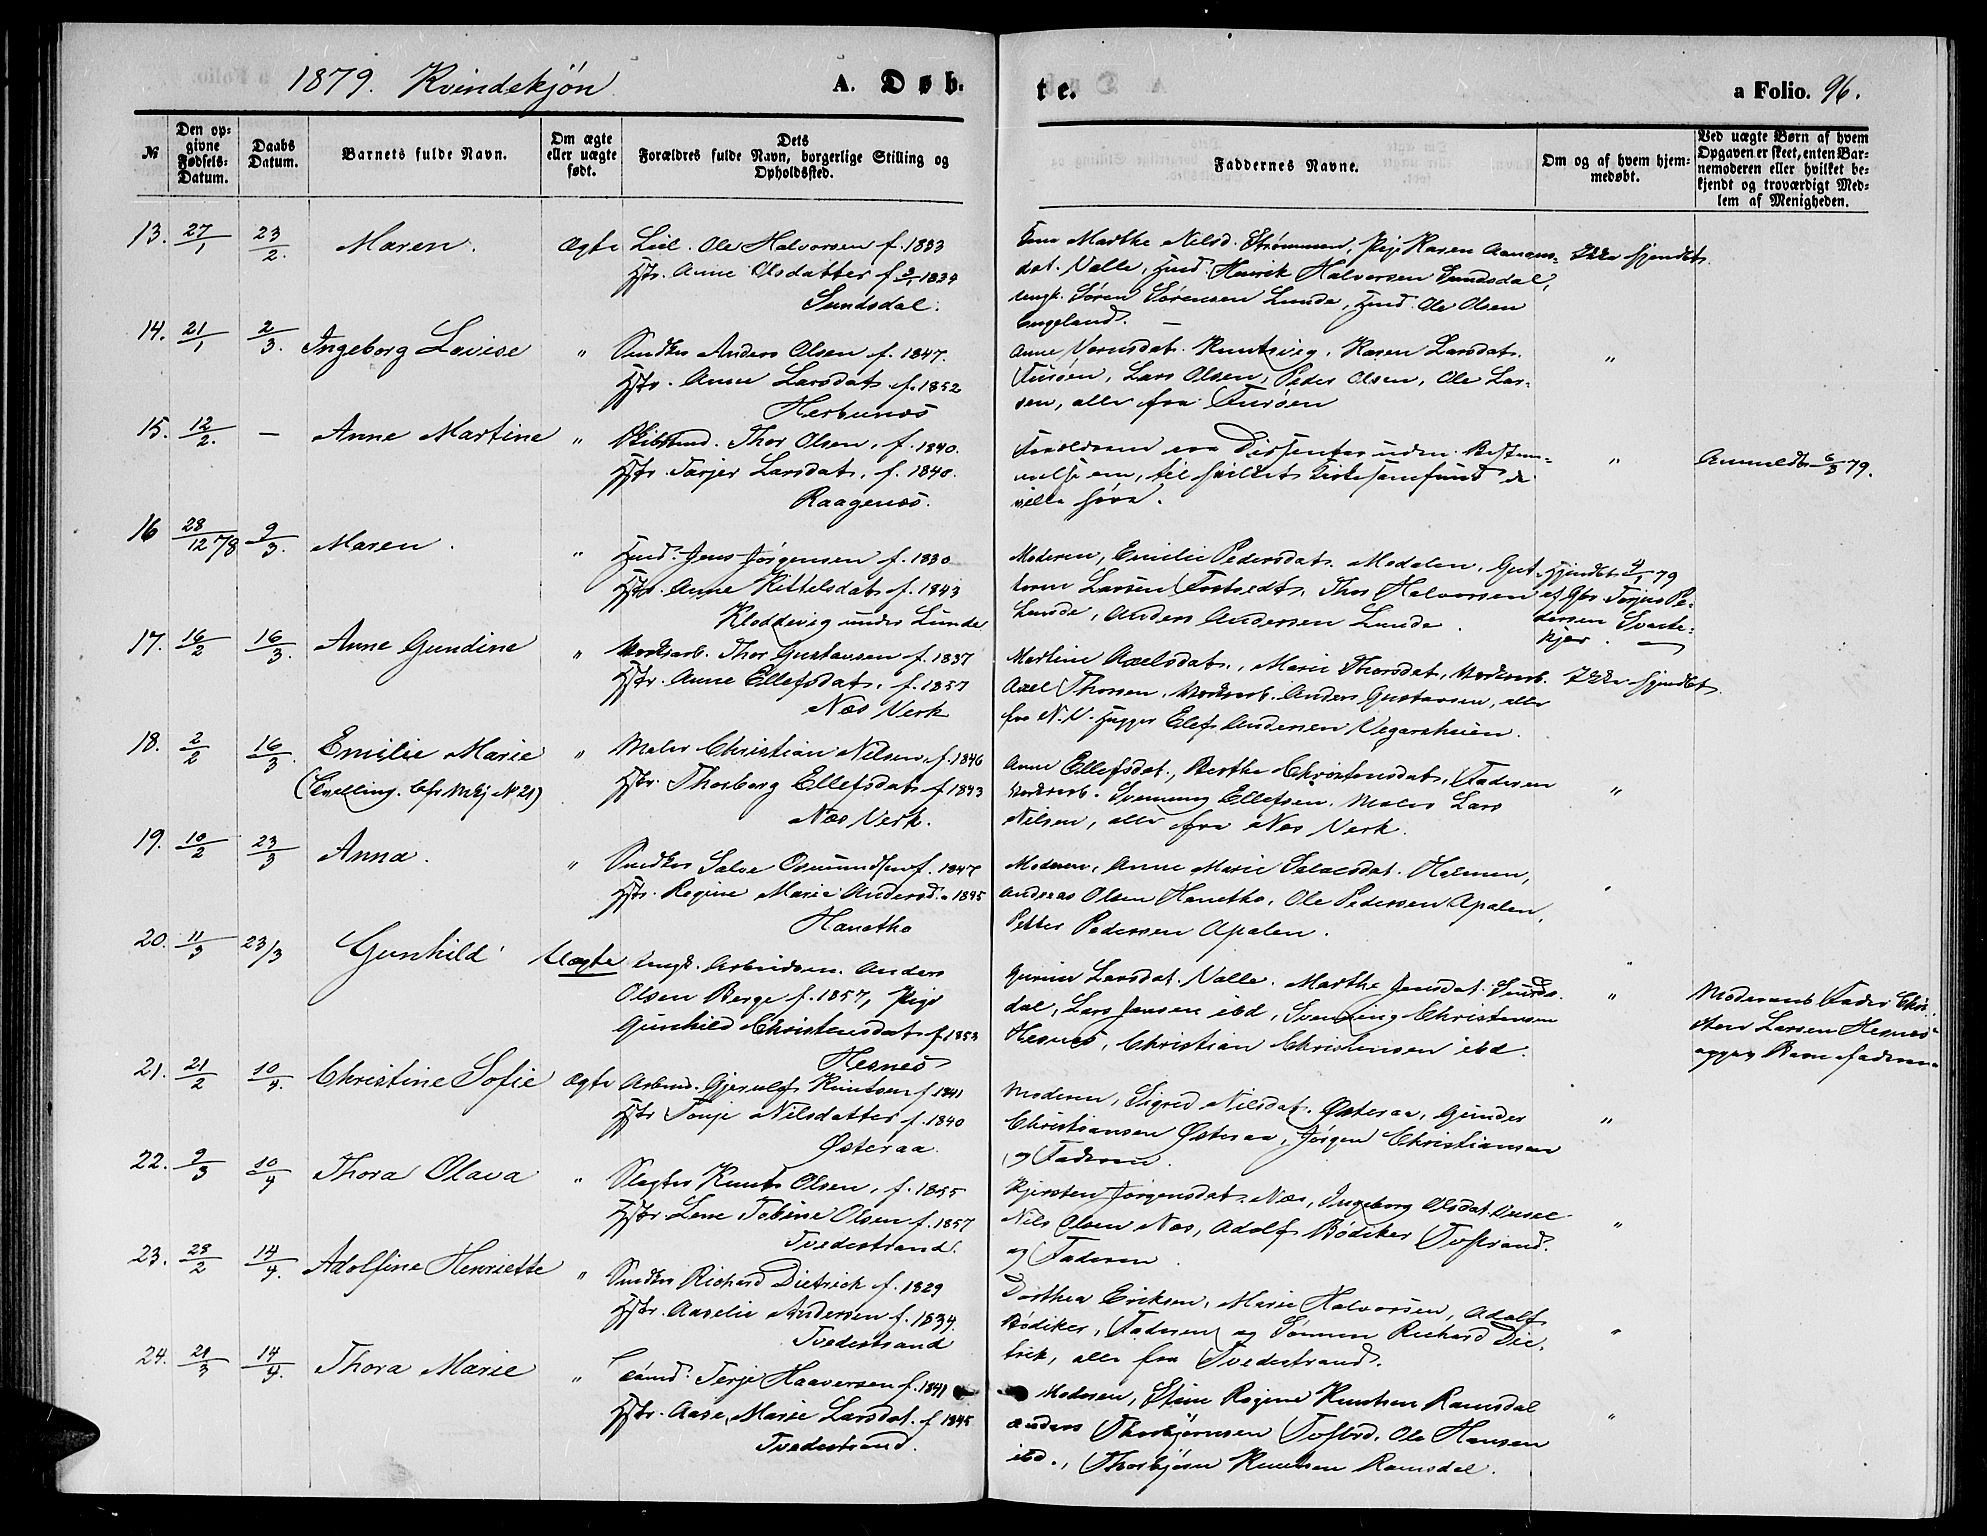 1879. Kvindekjøn
A. Døb-
te.
a Folio. 96.
№
Den op-
givne
Fødsels-
Datum.
Daabs
Datum.
Barnets fulde Navn.
Om ægte
eller uægte
født.
Dets
Forældres fulde Navn, borgerlige Stilling og
Opholdssted.
Faddernes Navne.
Om og af hvem hjem-
medøbt.
Ved uægte Børn af hvem
Opgaven er skeet, enten Bar-
nemoderen eller hvilket be-
kjendt og troværdigt Med-
lem af Menigheden.
13. 27/1 23/2. Maren. Ægte
Ole Halvorsen f. 1833
Hstr. Anne Olsdatter f. 1834
Sundsdal.
Marthe Nilsd. Strømmen, Pige Karen Aanons-
dat. Valle, Husd. Henrik Halvorsen Sundsdal,
Ungk. Søren Sørensen Lunde, Husd. Ole Olsen
Engeland. —
Ikke hjemdøbt.
14. 21/1 2/3. Ingeborg Lovise "
Snedker Anders Olsen f. 1847.
Hstr. Anne Larsdat. f. 1852
Anne Karen Larsdat.
Furøen, Lars Olsen, Peder Olsen, Ole Lar-
sen, alle fra Furøen
"
15. 12/2. — Anne Martine "
Thor Olsen, f. 1840.
Hstr. Tarjer Larsdat. f. 1840.
Raagenæs.
Forældrene ere Dissenter uden Bestem-
melse om, til hvilket Kirkesamfund de
ville høre.
"
Anmeldt 6/3 79.
16 28/12 78 9/3. Maren. "
Husd. Jens Jørgensen f. 1830
Hstr. Anne Kittelsdat. f. 1843
Kloddevig under Lunde
Moderen, Emilie Pedersdat. Modalen, Gut-
torm Larsen Fosstvedt, Thor Halvorsen
Lunde, Anders Andersen Lunde.
Hjemdøbt 79
af Gbr. Terjus Pe-
dersen Svarte-
kjær. —
17. 16/2 16/3. Anne Gundine "
Verksarb. Thor Gustavsen f. 1837
Hstr. Anne Ellefsdat. f. 1857
Næs Verk
Martine Axelsdat., Marie Thorsdat., Verksarb.
Axel Thorsen, Verksarb. Anders Gustavsen, alle
fra N.V. Hugger Elef Andersen Vegarsheien.
Ikke hjemdøbt
18. 2/2 16/3. Emilie Marie "
(Tvilling. Cfr. Mkj N. 21)
Maler Christian Nilsen, f. 1846
Hstr. Thorborg Ellefsdat. f. 1843
Næs Verk.
Anne Ellefsdat., Berthe Christensdat., Faderen
Verksarb. Svenung Ellefsen, Maler Lars
Nilsen, alle fra Næs Verk.
"
19. 10/2 23/3 Anna. "
Snedker Salve Osmundsen f. 1847
Hstr. Regine Marie Andersd. " 1845
Hanetho
Moderen, Anne Marie Salvesdat. Holmen,
Andreas Olsen Hanetho, Ole Pedersen Apalen,
Petter Pedersen Apalen.
"
20. 11/3 23/3 Gunhild Uægte
Ungk. Arbeidsm. Anders
Olsen Berge f. 1857, Pige
Gunhild Christensdat. f. 1853
Hesnes
Gurine Larsdat. Valle. Marthe Jensdat. Sunds-
dal, Lars Jensen ibd, Svenung Christensen
Hesnes, Christian Christensen ibd.
"
Moderens Fader Chri-
sten Larsen Hesnes
opgav Barnefaderen.
21. 21/2 10/4. Christine Sofie Ægte
Arbmd. Gjerulf Knutsen f. 1841
Hstr. Tonje Nilsdatter f. 1840
Østeraa
Moderen, Sigred Nilsdat. Østeraa, Gunder
Christiansen Østeraa, Jørgen Christiansen
og Faderen.
"
22. 9/3 10/4 Thora Olava "
Slagter Knut Olsen, f. 1855
Hstr. Lene Tobine Olsen f. 1857
Tvedestrand.
Kjersten Jørgensdat. Næs, Ingeborg Olsdat.
Nils Olsen Næs, Adolf Bødiker Tvestrand.
og Faderen.
"
23. 28/2 14/4. Adolfine Henriette "
Snedker Richard Dietrich f. 1829
Hstr. Aaselie Andersen f. 1834.
Tvedestrand
Dorthea Eriksen, Marie Halvorsen, Adolf
Bødiker, Faderen og Sønnen Richard Die-
trik, alle fra Tvedestrand.
"
24. 21/3 14/4. Thora Marie "
Sømd. Terje Haaversen f. 1841
Hstr. Aase Marie Larsdat. f 1845
Tvedestrand.
Moderen, Stine Regine Knutsen Ramsdal
Anders Thorbjørnsen Ole Hansen
ibd., Thorbjørn Knutsen Ramsdal.
"